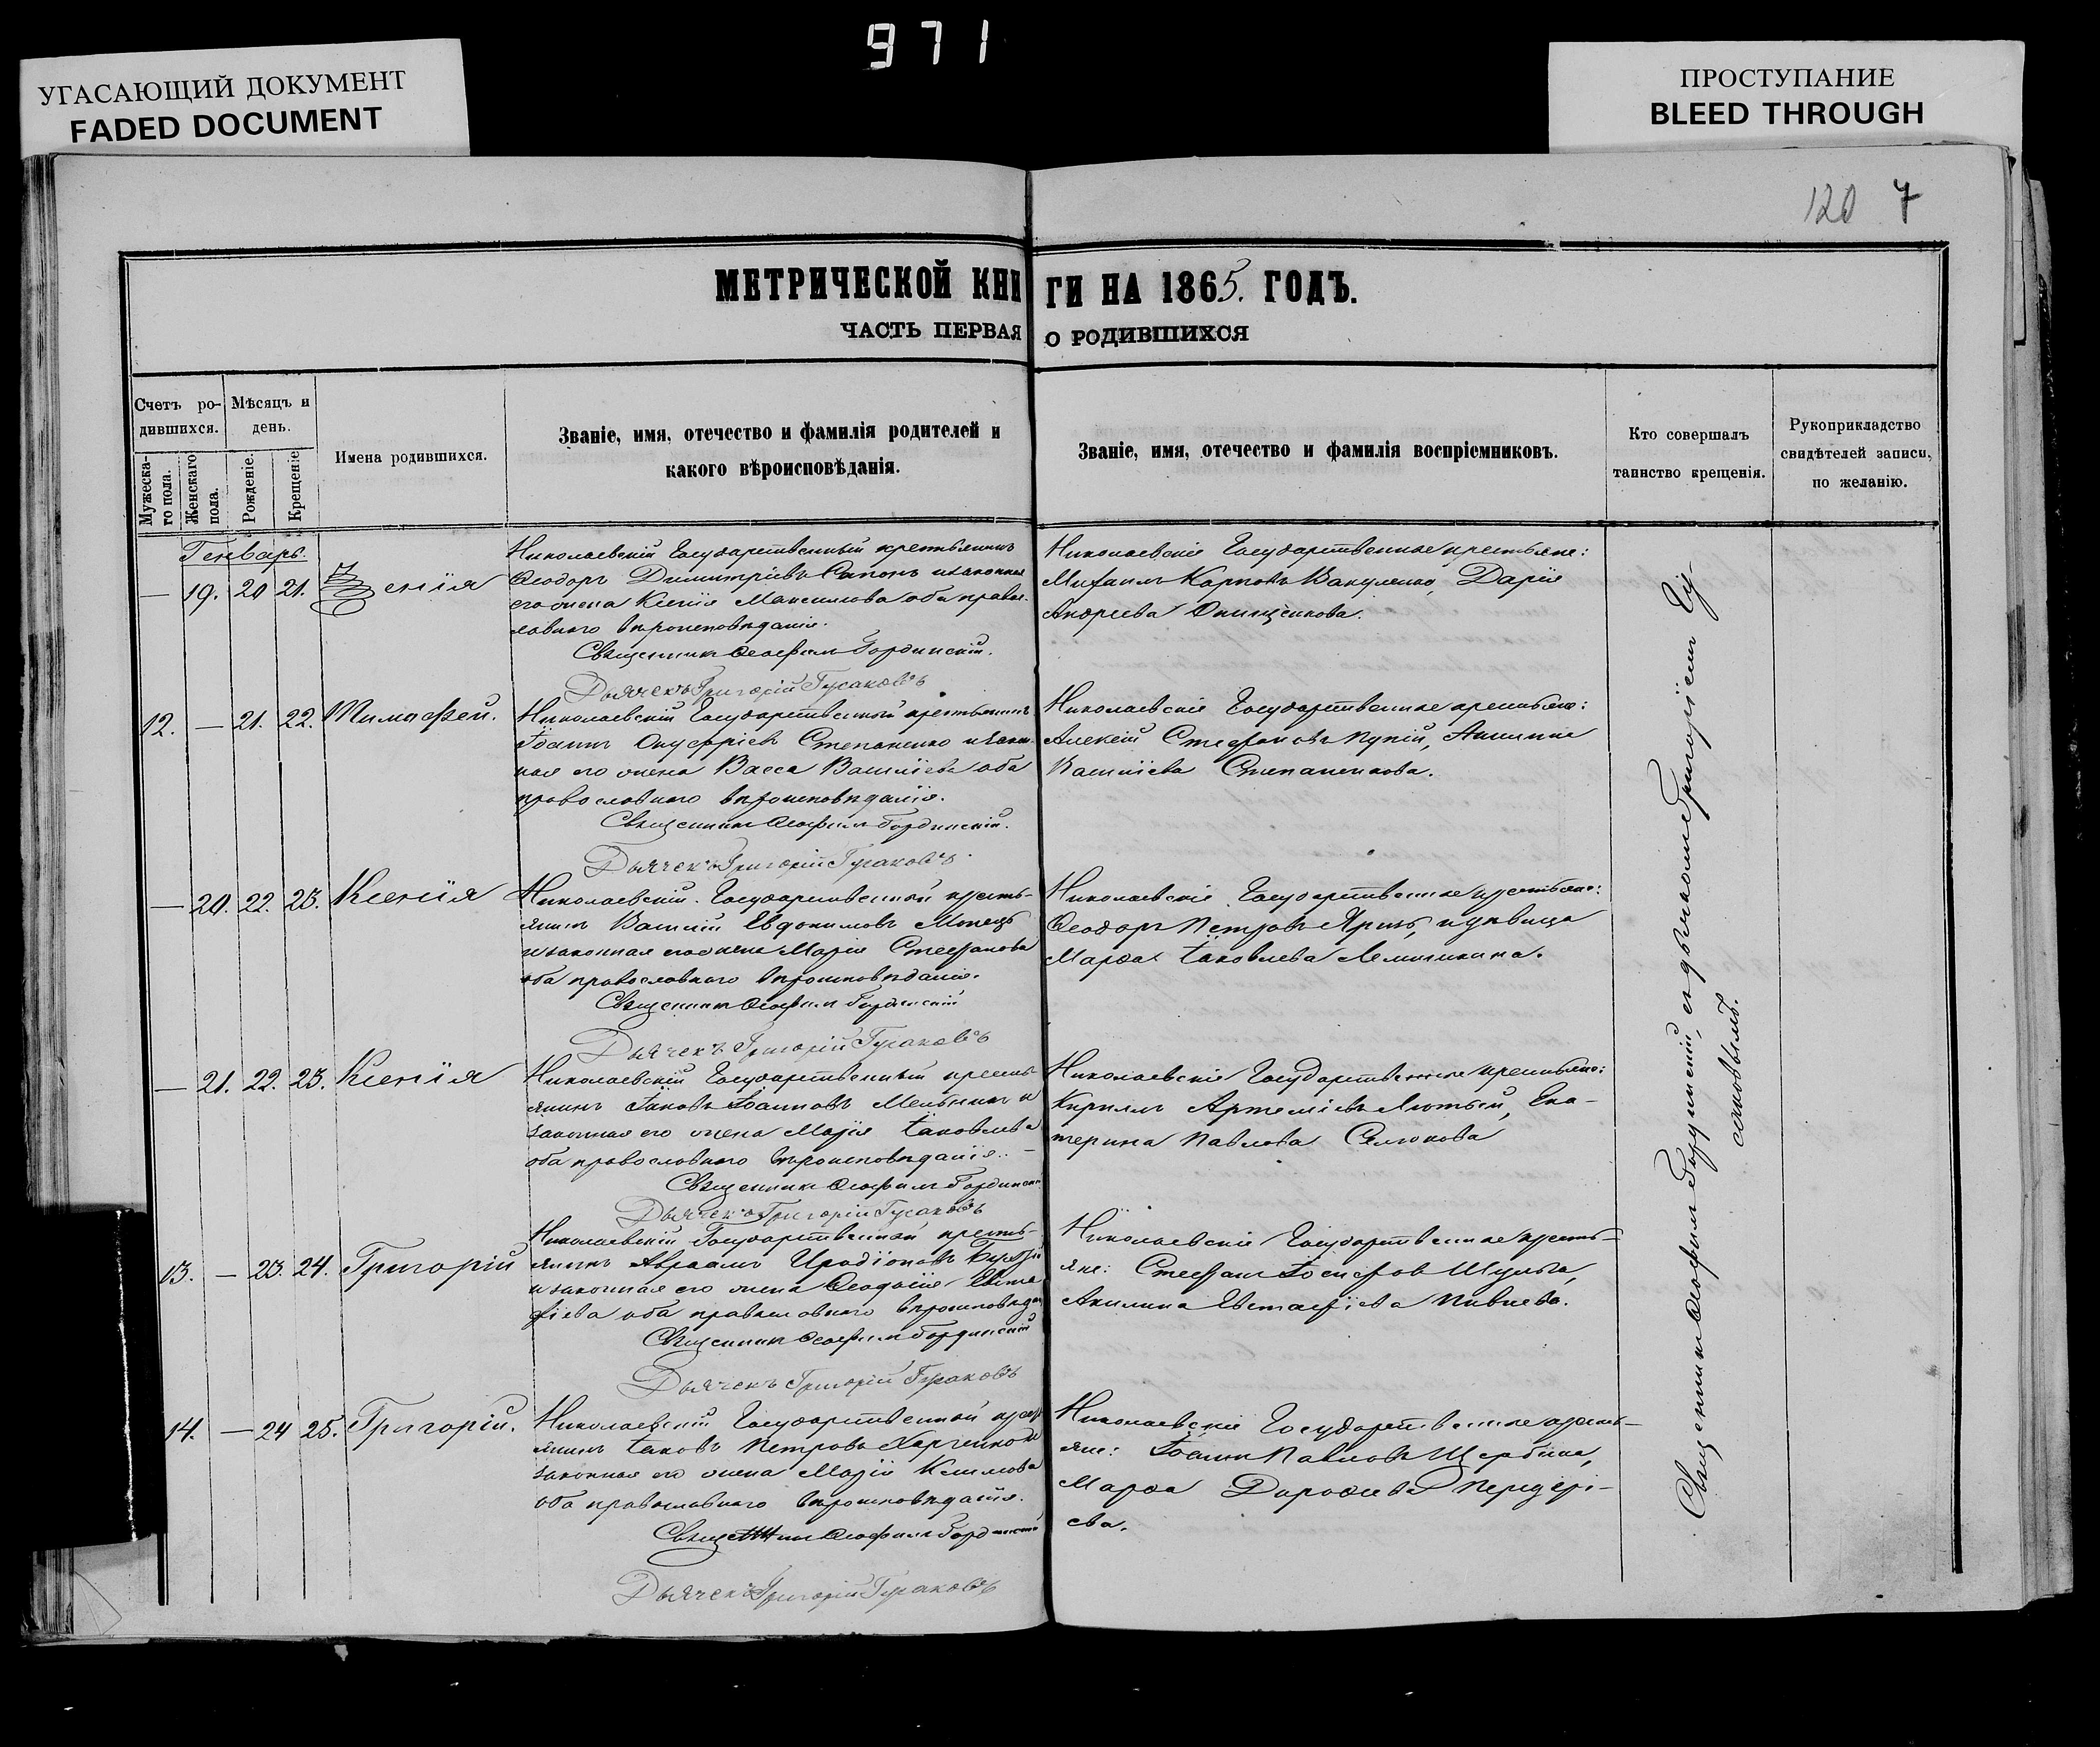 971
УГАСАЮЩИЙ ДОКУМЕНТ
FADED DOCUMENT
ПРОСТУПАНИЕ
BLEED THROUGH
120 7
МЕТРИЧЕСКОЙ КНИГИ НА 1865. ГОДЪ.
ЧАСТЬ ПЕРВАЯ О РОДИВШИХСЯ
Счетъ ро-
дившихся.
Мужеска-
го пола.
Женскаго
пола.
Мѣсяцъ и
день.
Рожденіе.
Крещеніе
Имена родившихся.
Званіе, имя, отечество и фамилія родителей и
какого вѣроисповѣданія.
Званіе, имя, отечество и фамилія воспріемниковъ.
Кто совершалъ
таинство крещенія.
Рукоприкладство
свидѣтелей записи,
по желанію.
Генварь.
— 19. 20 21. енія
Николаевскій Государственный крестьянинъ
Ѳеодоръ Димитріевъ Сапонъ и законная
его жена Ксенія Максимова оба право-
славного вѣроисповѣданія.
Священникъ Ѳеофилъ Бординскій.
Дьячекъ Григорій Гусаковъ
Николаевскіе Государственные крестьяне:
Михаилъ Карповъ Вакуленко, Дарія
Андреева Онищенкова.
12. — 21. 22. Тимофей.
Николаевскій Государственный крестьянинъ
Іоаннъ Онуфріевъ Степаненко и закон-
ная его жена Васса Василіева оба
православного вѣроисповѣданія.
Священникъ Ѳеофилъ Бординскій.
Дьячекъ Григорій Гусаковъ
Николаевскіе Государственные крестьяне:
Алексій Стефановъ
Василіева Степаненкова.
— 20. 22. 23. Ксенія
Николаевскій Государственный кресть-
янинъ Василій Евдокимовъ
и законная его жена Марія Стефанова
оба православного вѣроисповѣданія.
Священникъ Ѳеофилъ Бординскій
Дьячекъ Григорій Гусаковъ
Николаевскіе Государственные крестьяне:
Ѳеодоръ Петровъ
Марѳа Іаковлева
— 21. 22. 23. Ксенія
Николаевскій Государственный кресть-
янинъ Іаковъ Іоанновъ Мельникъ и
законная его жена Марія Іаковлева
оба православного вѣроисповѣданія.
Священникъ Ѳеофилъ Бординскій
Дьячекъ Григорій Гусаковъ
Николаевскіе Государственные крестьяне:
Кириллъ Артеміевъ Лютый, Ека-
терина Павлова
13. — 23. 24. Григорій
Николаевскій Государственный кресть-
янинъ Авраамъ Иродіоновъ
и законная его жена Ѳеодосія Евста-
фіева оба православного вѣроисповѣдан
Священникъ Ѳеофилъ Бординскій
Дьячекъ Григорій Гусаковъ
Николаевскіе Государственные кресть-
яне: Стефанъ Іосифовъ Шульга,
Акилина Евстафіева Пивнева.
14. — 24 25. Григорій.
Николаевскій Государственный крест
янинъ Іаковъ Петровъ Харченко и
законная его жена Марія Климова
оба православного вѣроисповѣданія.
Священникъ Ѳеофилъ Бординскій
Дьячекъ Григорій Гусаковъ
Николаевскіе Государственные кресть-
яне: Іоаннъ Павловъ Щербина,
Марѳа Дороѳеева Передері-
ева.
Священникъ Ѳеофилъ Бординскій, съ дьячкомъ Григоріемъ Гу-
саковымъ.